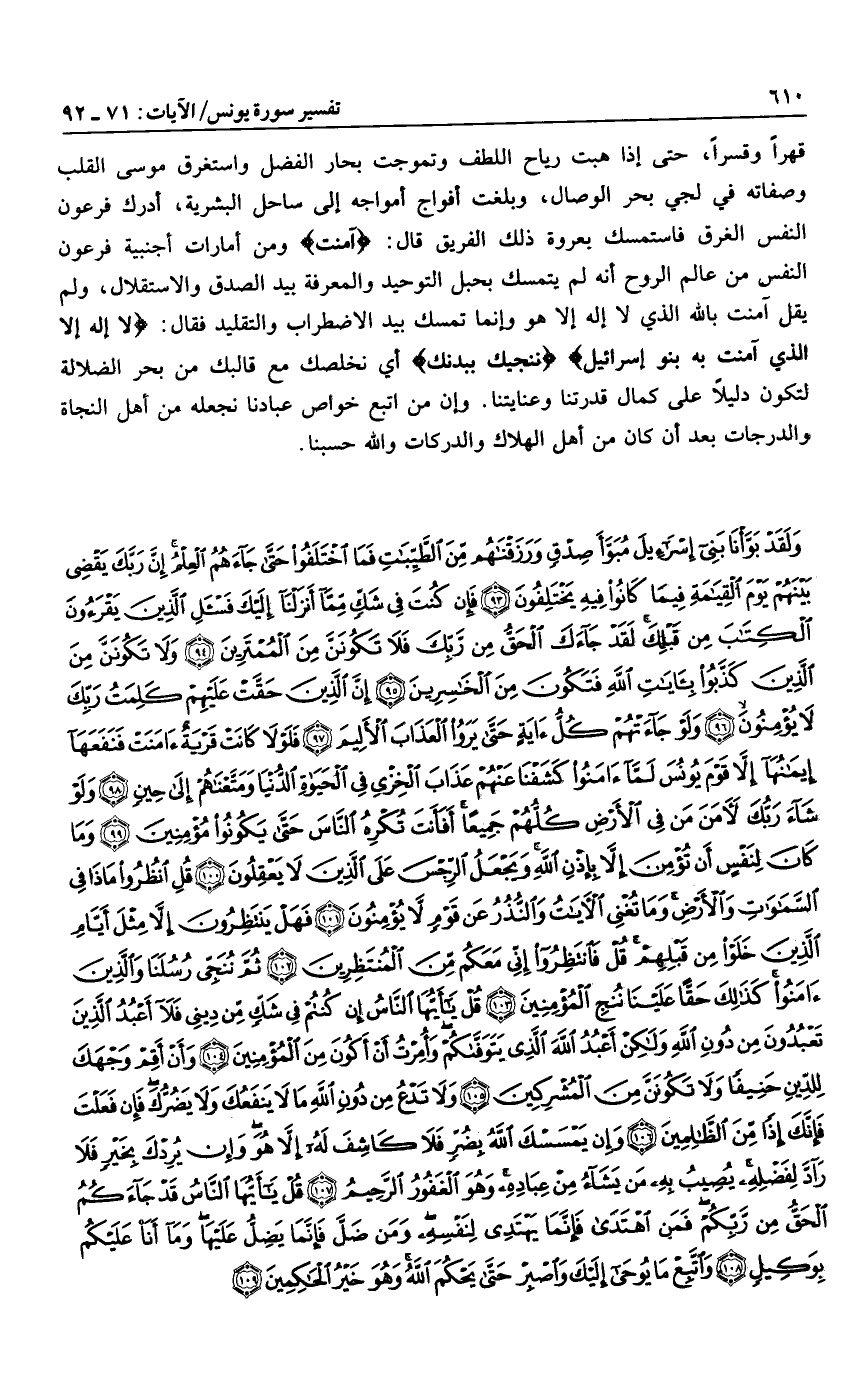 ٦١٠
تفسير سورة يونس/ الآيات: ٧١ ـ ٩٢
قهراً وقسراً، حتى إذا هبت رياح اللطف وتموجت بحار الفضل واستغرق موسى القلب
وصفاته في لجي بحر الوصال، وبلغت أفواج أمواجه إلى ساحل البشرية، أدرك فرعون
النفس الغرق فاستمسك بعروة ذلك الفريق قال: ﴿آمنت﴾ ومن أمارات أجنبية فرعون
النفس من عالم الروح أنه لم يتمسك بحبل التوحيد والمعرفة بيد الصدق والاستقلال، ولم
يقل آمنت بالله الذي لا إله إلا هو وإنما تمسك بيد الاضطراب والتقليد فقال: ﴿لا إله إلا
الذي آمنت به بنو إسرائيل﴾ ﴿ننجيك ببدنك﴾ أي نخلصك مع قالبك من بحر الضلالة
لتكون دليلاً على كمال قدرتنا وعنايتنا. وإن من اتبع خواص عبادنا نجعله من أهل النجاة
والدرجات بعد أن كان من أهل الهلاك والدركات والله حسبنا.
وَلَقَدْ بَوَّأْنَا بَنِىٓ إِسْرَٰٓءِيلَ مُبَوَّأَ صِدْقٍ وَرَزَقْنَٰهُم مِّنَ ٱلطَّيِّبَٰتِ فَمَا ٱخْتَلَفُوا۟ حَتَّىٰ جَآءَهُمُ ٱلْعِلْمُ ۚ إِنَّ رَبَّكَ يَقْضِى
بَيْنَهُمْ يَوْمَ ٱلْقِيَٰمَةِ فِيمَا كَانُوا۟ فِيهِ يَخْتَلِفُونَ ﴿٩٣﴾ فَإِن كُنتَ فِى شَكٍّ مِّمَّآ أَنزَلْنَآ إِلَيْكَ فَسْـَٔلِ ٱلَّذِينَ يَقْرَءُونَ
ٱلْكِتَٰبَ مِن قَبْلِكَ ۚ لَقَدْ جَآءَكَ ٱلْحَقُّ مِن رَّبِّكَ فَلَا تَكُونَنَّ مِنَ ٱلْمُمْتَرِينَ ﴿٩٤﴾ وَلَا تَكُونَنَّ مِنَ
ٱلَّذِينَ كَذَّبُوا۟ بِـَٔايَٰتِ ٱللَّهِ فَتَكُونَ مِنَ ٱلْخَٰسِرِينَ ﴿٩٥﴾ إِنَّ ٱلَّذِينَ حَقَّتْ عَلَيْهِمْ كَلِمَتُ رَبِّكَ
لَا يُؤْمِنُونَ ۙ﴿٩٦﴾ وَلَوْ جَآءَتْهُمْ كُلُّ ءَايَةٍ حَتَّىٰ يَرَوُا۟ ٱلْعَذَابَ ٱلْأَلِيمَ ﴿٩٧﴾ فَلَوْلَا كَانَتْ قَرْيَةٌ ءَامَنَتْ فَنَفَعَهَآ
إِيمَٰنُهَآ إِلَّا قَوْمَ يُونُسَ لَمَّآ ءَامَنُوا۟ كَشَفْنَا عَنْهُمْ عَذَابَ ٱلْخِزْىِ فِى ٱلْحَيَوٰةِ ٱلدُّنْيَا وَمَتَّعْنَٰهُمْ إِلَىٰ حِينٍ ﴿٩٨﴾ وَلَوْ
شَآءَ رَبُّكَ لَءَامَنَ مَن فِى ٱلْأَرْضِ كُلُّهُمْ جَمِيعًا ۚ أَفَأَنتَ تُكْرِهُ ٱلنَّاسَ حَتَّىٰ يَكُونُوا۟ مُؤْمِنِينَ ﴿٩٩﴾ وَمَا
كَانَ لِنَفْسٍ أَن تُؤْمِنَ إِلَّا بِإِذْنِ ٱللَّهِ ۚ وَيَجْعَلُ ٱلرِّجْسَ عَلَى ٱلَّذِينَ لَا يَعْقِلُونَ ﴿١٠٠﴾ قُلِ ٱنظُرُوا۟ مَاذَا فِى
ٱلسَّمَٰوَٰتِ وَٱلْأَرْضِ ۚ وَمَا تُغْنِى ٱلْءَايَٰتُ وَٱلنُّذُرُ عَن قَوْمٍ لَّا يُؤْمِنُونَ ﴿١٠١﴾ فَهَلْ يَنتَظِرُونَ إِلَّا مِثْلَ أَيَّامِ
ٱلَّذِينَ خَلَوْا۟ مِن قَبْلِهِمْ ۚ قُلْ فَٱنتَظِرُوٓا۟ إِنِّى مَعَكُم مِّنَ ٱلْمُنتَظِرِينَ ﴿١٠٢﴾ ثُمَّ نُنَجِّى رُسُلَنَا وَٱلَّذِينَ
ءَامَنُوا۟ ۚ كَذَٰلِكَ حَقًّا عَلَيْنَا نُنجِ ٱلْمُؤْمِنِينَ ﴿١٠٣﴾ قُلْ يَٰٓأَيُّهَا ٱلنَّاسُ إِن كُنتُمْ فِى شَكٍّ مِّن دِينِى فَلَآ أَعْبُدُ ٱلَّذِينَ
تَعْبُدُونَ مِن دُونِ ٱللَّهِ وَلَٰكِنْ أَعْبُدُ ٱللَّهَ ٱلَّذِى يَتَوَفَّىٰكُمْ ۖ وَأُمِرْتُ أَنْ أَكُونَ مِنَ ٱلْمُؤْمِنِينَ ﴿١٠٤﴾ وَأَنْ أَقِمْ وَجْهَكَ
لِلدِّينِ حَنِيفًا وَلَا تَكُونَنَّ مِنَ ٱلْمُشْرِكِينَ ﴿١٠٥﴾ وَلَا تَدْعُ مِن دُونِ ٱللَّهِ مَا لَا يَنفَعُكَ وَلَا يَضُرُّكَ ۖ فَإِن فَعَلْتَ
فَإِنَّكَ إِذًا مِّنَ ٱلظَّٰلِمِينَ ﴿١٠٦﴾ وَإِن يَمْسَسْكَ ٱللَّهُ بِضُرٍّ فَلَا كَاشِفَ لَهُۥٓ إِلَّا هُوَ ۖ وَإِن يُرِدْكَ بِخَيْرٍ فَلَا
رَآدَّ لِفَضْلِهِۦ ۚ يُصِيبُ بِهِۦ مَن يَشَآءُ مِنْ عِبَادِهِۦ ۚ وَهُوَ ٱلْغَفُورُ ٱلرَّحِيمُ ﴿١٠٧﴾ قُلْ يَٰٓأَيُّهَا ٱلنَّاسُ قَدْ جَآءَكُمُ
ٱلْحَقُّ مِن رَّبِّكُمْ ۖ فَمَنِ ٱهْتَدَىٰ فَإِنَّمَا يَهْتَدِى لِنَفْسِهِۦ ۖ وَمَن ضَلَّ فَإِنَّمَا يَضِلُّ عَلَيْهَا ۖ وَمَآ أَنَا۠ عَلَيْكُم
بِوَكِيلٍ ﴿١٠٨﴾ وَٱتَّبِعْ مَا يُوحَىٰٓ إِلَيْكَ وَٱصْبِرْ حَتَّىٰ يَحْكُمَ ٱللَّهُ ۚ وَهُوَ خَيْرُ ٱلْحَٰكِمِينَ ﴿١٠٩﴾